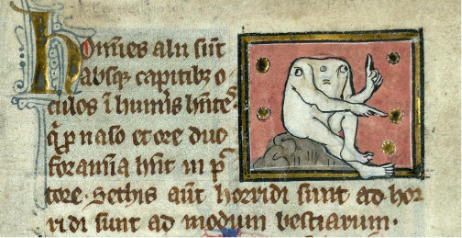 homies alii sūt
absq; capitibȝ o
culos ī humis hn̄tes
q̄ p naso et ore duo
foramīa hn̄t in p̄
tore. Sethis aūt horridi sunt ad hor
ridi sunt ad modum bestiarum.